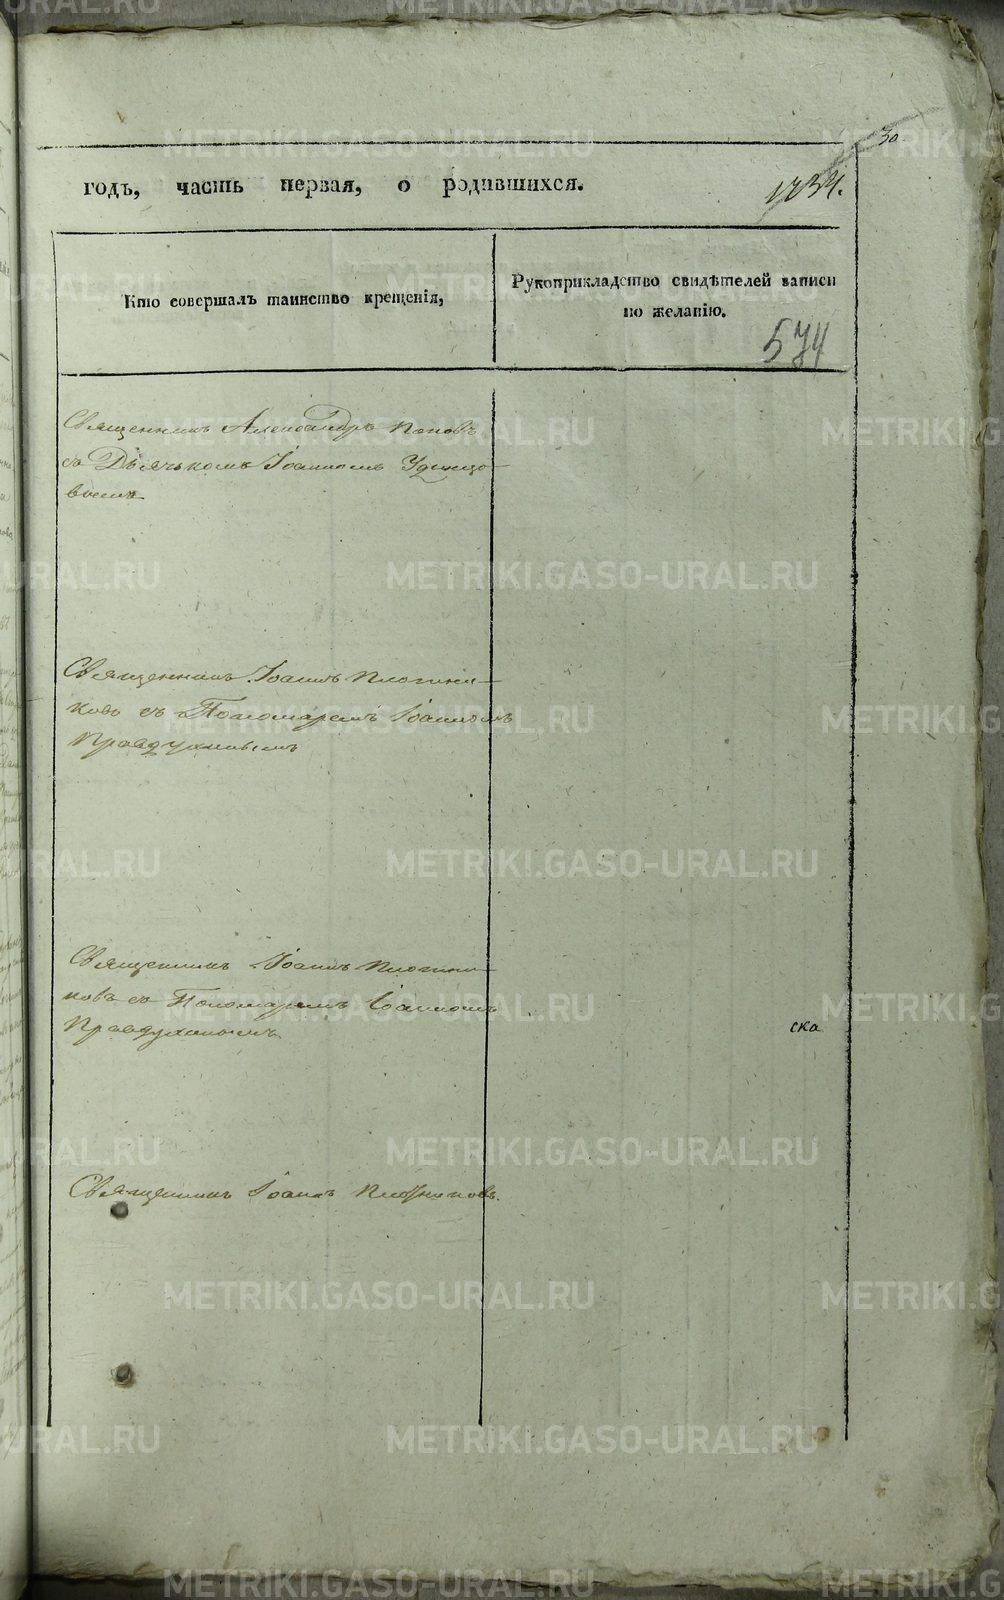 30
годъ, часть первая, о родившихся.
Кто совершалъ таинство крещенія,
Рукоприкладство свидѣтелей записи
по желанію.
574
Священникъ Александръ Поповъ
съ Дьячкомъ Іоанномъ Удинцо-
вымъ
Священникъ Іоаннъ Плотни-
ковъ съ Пономаремъ Іоанномъ
Правдухинымъ
Священникъ Іоаннъ Плотни-
ковъ съ Пономаремъ Іоанномъ
Правдухинымъ
ска
Священникъ Іоаннъ Плотниковъ.
METRIKI.GASO-URAL.RU